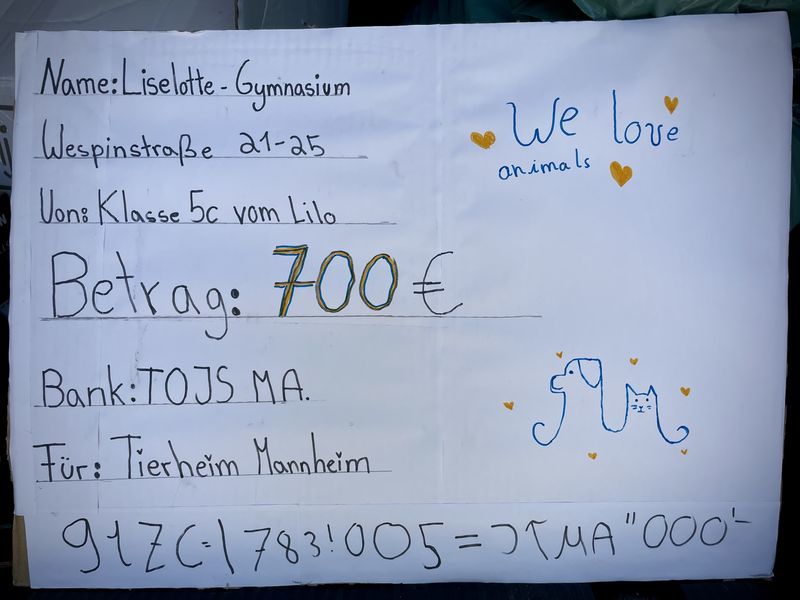 Name: Liselotte - Gymnasium
Wespinstraße 21-25
Von: Klasse 5c vom Lilo
Betrag: 700 €
Bank: TOJS MA.
Für: Tierheim Mannheim
We love
animals